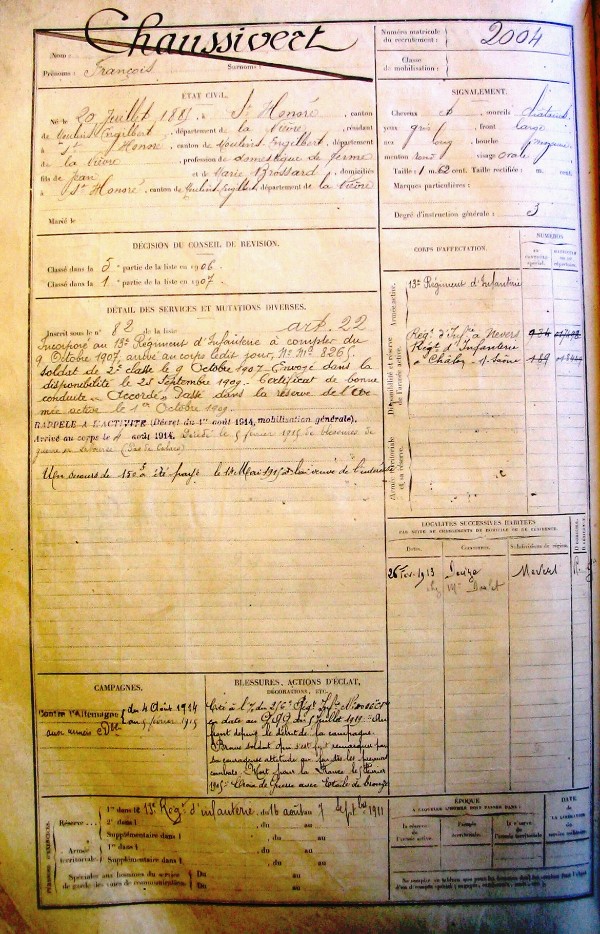 Nom : Chaussivert
Prénoms : François Surnoms :
Numéro matricule
du recrutement : 2004
Classe
de mobilisation :
ÉTAT CIVIL.
Né le 20 Juillet 188 , à St Honoré, canton
de Moulins Engilbert, département de la Nièvre, résidant
à St Honoré, canton de Moulins-Engilbert, département
de la Nièvre, profession de domestique de ferme
fils de Jean et de Marie Brossard, domiciliés
à St Honoré, canton de Moulins-Engilbert, département de la Nièvre
Marié le
SIGNALEMENT.
Cheveux et sourcils châtains
yeux gris, front large
nez long, bouche moyenne
menton rond visage ovale
Taille : 1 m. 62 cent. Taille rectifiée : m. cent.
Marques particulières :
Degré d'instruction générale : 3
DÉCISION DU CONSEIL DE REVISION.
Classé dans la 5e partie de la liste en 1906.
Classé dans la 1 partie de la liste en 1907.
DÉTAIL DES SERVICES ET MUTATIONS DIVERSES.
Inscrit sous le n° 82 de la liste art. 22
Incorporé au 13e Régiment d'Infanterie à compter du
9 Octobre 1907, arrivé au corps ledit jour, No Mle 3265
soldat de 2e classe le 9 Octobre 1907. Envoyé dans la
disponibilité le 25 Septembre 1909. Certificat de bonne
conduite "Accordé". Passé dans la réserve de l'Ar-
mée active le 1er Octobre 1909.
RAPPELÉ A L'ACTIVITÉ (Décret du 1er août 1914, mobilisation générale).
Arrivé au corps le 4 août 1914. Décédé le 5 février 1915 de blessures de
guerre (Pas de Calais)
Un secours de 150 f a été payé le 12 Mai 1915 à la veuve de l'intéressé
CORPS D'AFFECTATION.
NUMÉROS
Armée active.
13e Régiment d'Infanterie
Disponibilité et réserve
de l'armée active.
Régt d'Inftie à Nevers
Régt d'Infanterie
à Chalon s/Saône
Armée territoriale
et sa réserve.
LOCALITÉS SUCCESSIVES HABITÉES
PAR SUITE DE CHANGEMENTS DE DOMICILE OU DE RÉSIDENCE.
Dates. Communes. Subdivisions de région.
26 Fév. 1913 Decize Nevers
chez Mr
CAMPAGNES.
Contre l'Allemagne
du 4 Août 1914
au 5 février 1915
BLESSURES, ACTIONS D'ÉCLAT,
DÉCORATIONS, ETC.
Cité à l'O. du 256e Régt Inftie
en date du 5 Juillet 1915 Au
front depuis le début de la campagne
Brave soldat qui s'est fait remarquer par
sa courageuse attitude
combats. Mort pour la France le 5 février
1915. Croix de Guerre avec étoile de bronze
PÉRIODES D'EXERCICES.
Réserve
1re dans le 13e Régt d'infanterie, du 16 août au 7 Septbre 1911
2e dans l , du au
Supplémentaire dans l , du au
Armée
territoriale.
1re dans l , du au
Supplémentaire dans l , du au
Spéciales aux hommes du service
de garde des voies de communication.
Du au
Du au
ÉPOQUE
A LAQUELLE L'HOMME DOIT PASSER DANS :
la réserve
de l'armée active.
l'armée
territoriale.
la réserve
de l'armée territoriale.
DATE
DE LA LIBÉRATION
DU SERVICE MILITAIRE.